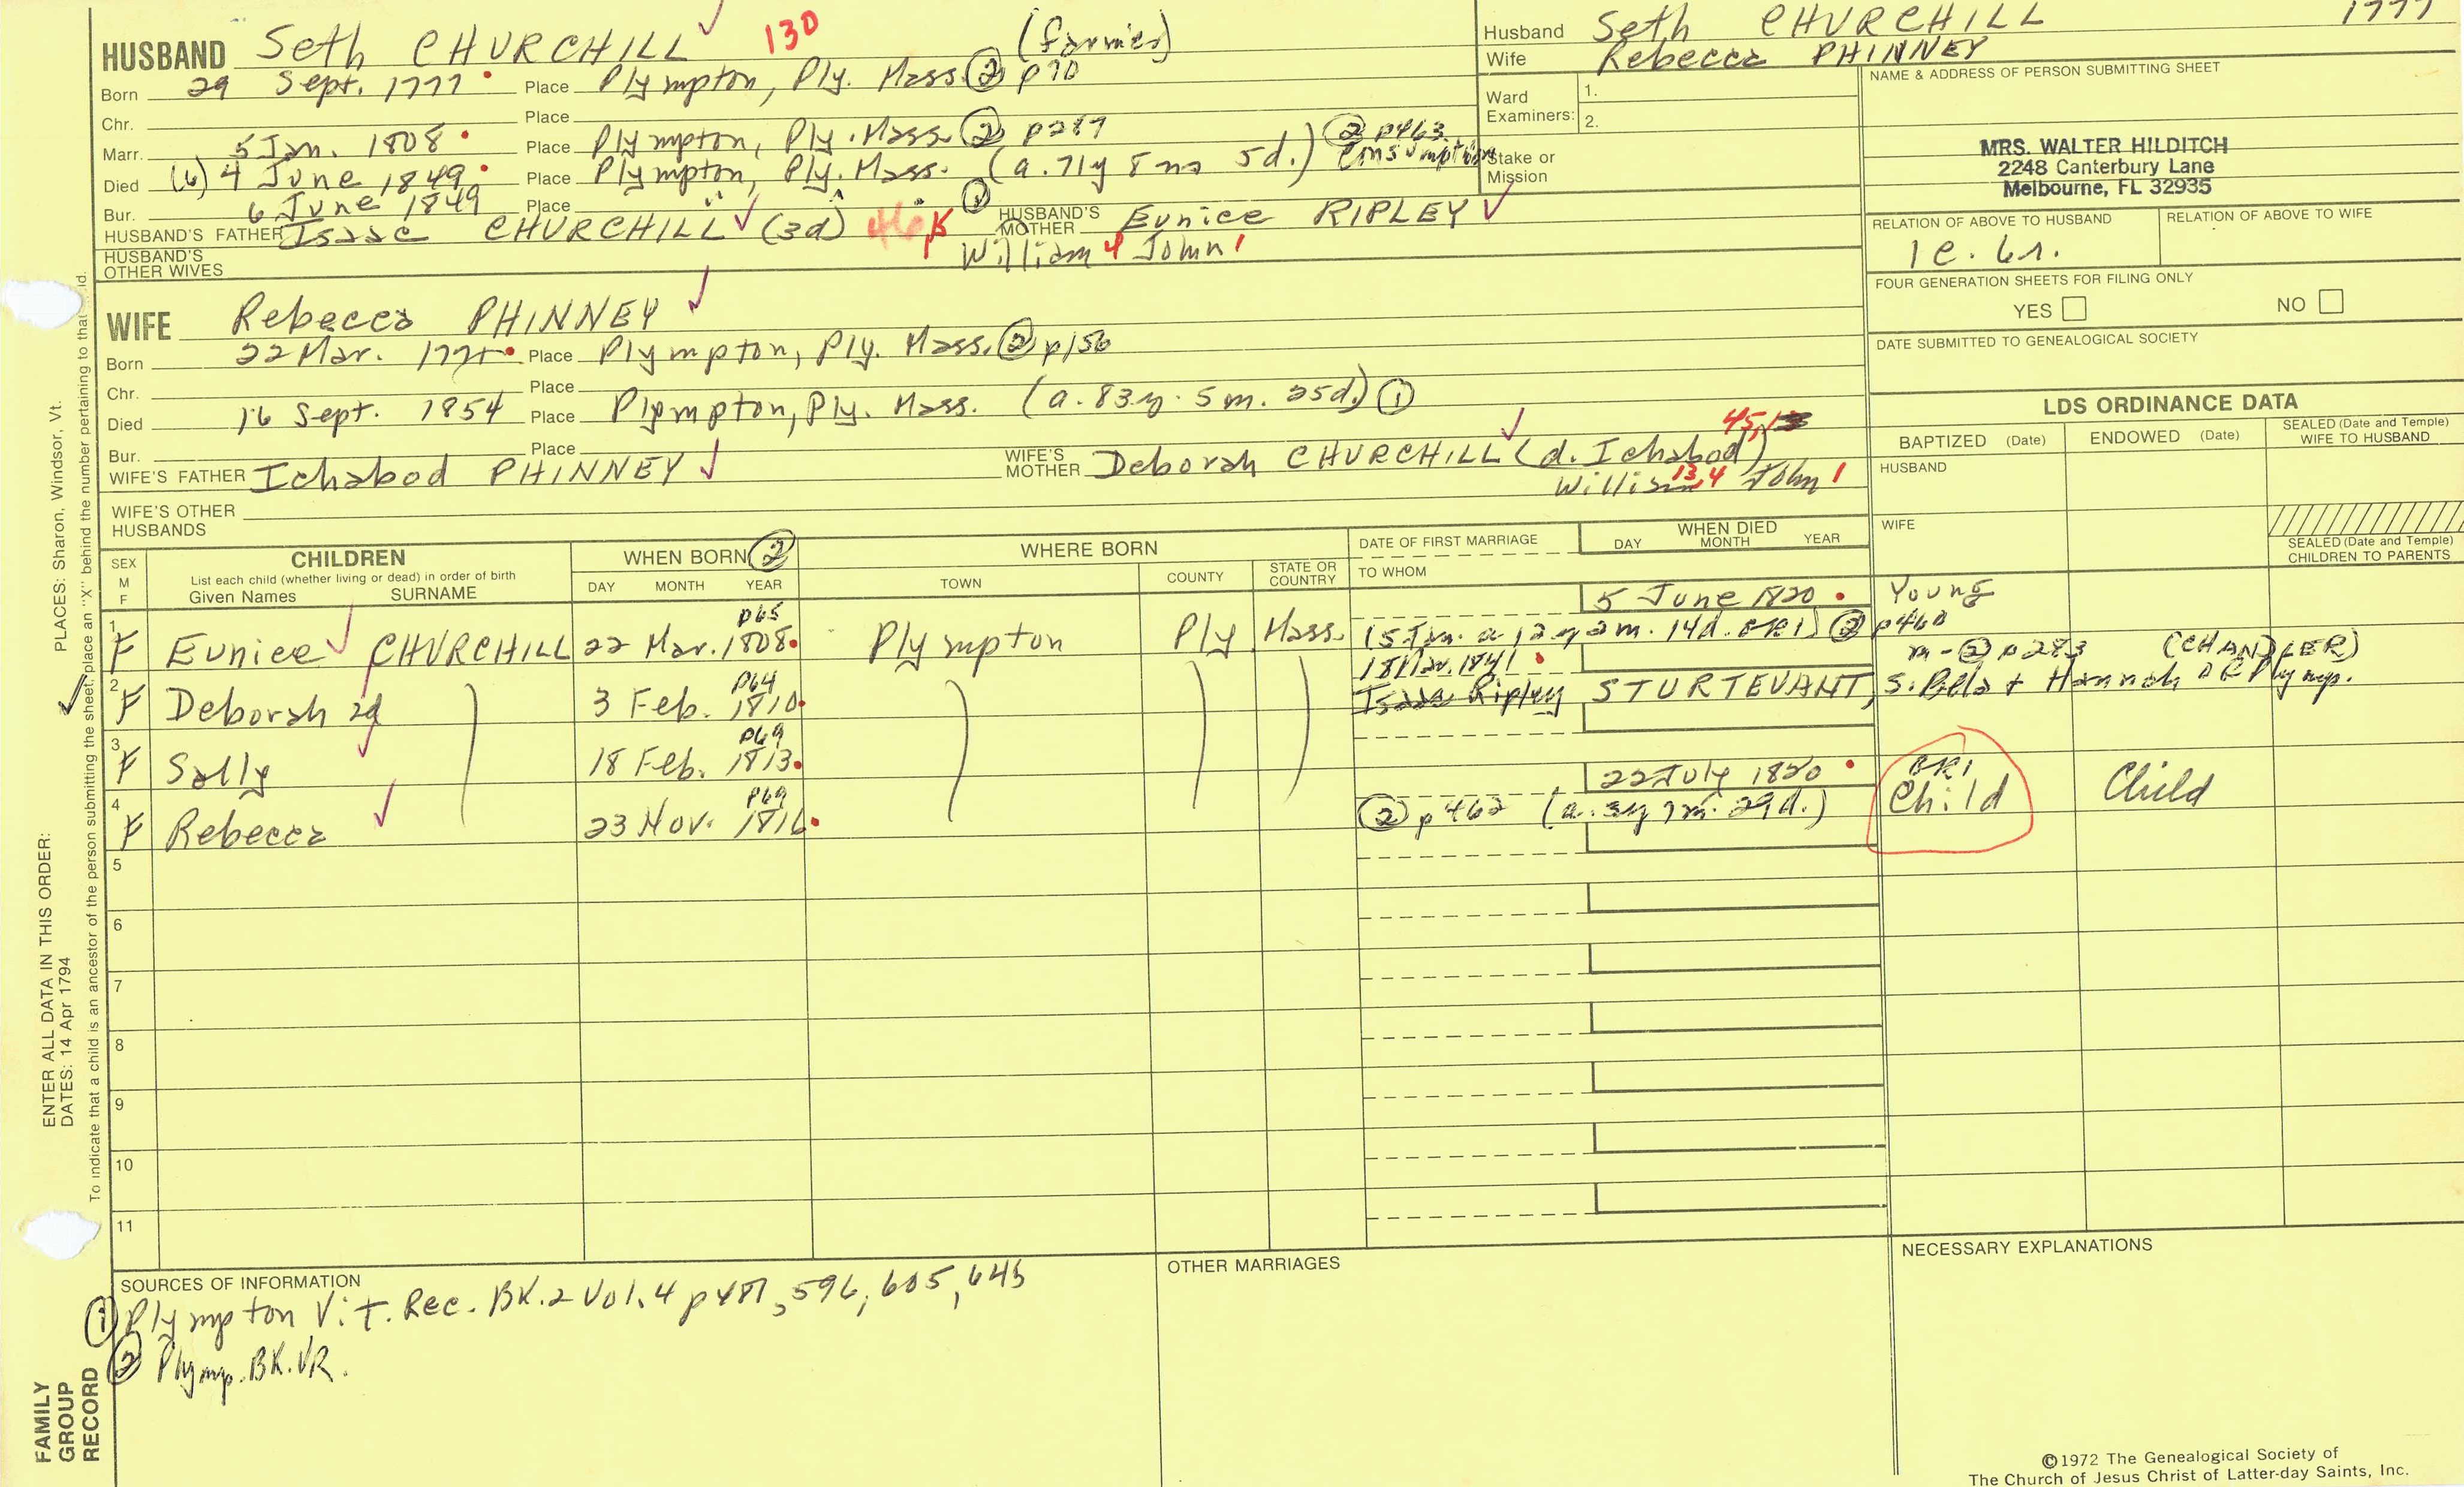 HUSBAND Seth CHURCHILL 130 (farmer)
Born 29 Sept. 1777 Place Plympton, Ply. Mass. ② p70
Chr. Place
Marr. 5 Jan. 1808 Place Plympton, Ply. Mass. ② p287
Died (6) 4 June 1849 Place Plympton, Ply. Mass. (a. 71y 8m 5d.) ② p463 Consumption
Bur. 6 June 1849 Place
HUSBAND'S FATHER Isaac CHURCHILL (3d) 46, HUSBAND'S MOTHER Eunice RIPLEY
William 4 John 1
HUSBAND'S OTHER WIVES
WIFE Rebecca PHINNEY
Born 22 Mar. 1771 Place Plympton, Ply. Mass. ② p156
Chr. Place
Died 16 Sept. 1854 Place Plympton, Ply. Mass. (a. 83y. 5m. 25d.) ①
Bur. Place
WIFE'S FATHER Ichabod PHINNEY WIFE'S MOTHER Deborah CHURCHILL (d. Ichabod) 45,
William 13,4 John 1
WIFE'S OTHER HUSBANDS
Husband Seth CHURCHILL 1777
Wife Rebecca PHINNEY
Ward Examiners: 1.
2.
Stake or Mission
NAME & ADDRESS OF PERSON SUBMITTING SHEET
MRS. WALTER HILDITCH
2248 Canterbury Lane
Melbourne, FL 32935
RELATION OF ABOVE TO HUSBAND RELATION OF ABOVE TO WIFE
FOUR GENERATION SHEETS FOR FILING ONLY
YES NO
DATE SUBMITTED TO GENEALOGICAL SOCIETY
LDS ORDINANCE DATA
BAPTIZED (Date) ENDOWED (Date) SEALED (Date and Temple) WIFE TO HUSBAND
HUSBAND
WIFE
SEALED (Date and Temple) CHILDREN TO PARENTS
SEX M F
CHILDREN
List each child (whether living or dead) in order of birth
Given Names SURNAME
WHEN BORN ②
DAY MONTH YEAR
WHERE BORN
TOWN COUNTY STATE OR COUNTRY
DATE OF FIRST MARRIAGE
TO WHOM
WHEN DIED
DAY MONTH YEAR
p65 5 June 1820 Young
1 F Eunice CHURCHILL 22 Mar. 1808 Plympton Ply Mass. (5 Jan. a 12y 2m. 14d. GR1) ② p460
p64 18 Mar. 1841 m-② p283 (CHANDLER)
2 F Deborah 2d 3 Feb. 1810 Isaac Ripley STURTEVANT, s. Bela + Hannah of Plymp.
p69
3 F Sally 18 Feb. 1813
p69 22 July 1820 GR1
4 F Rebecca 23 Nov. 1816 ② p462 (a. 3y 7m. 29d.) Child Child
5
6
7
8
9
10
11
SOURCES OF INFORMATION
① Plympton Vit. Rec. BK.2 Vol.4 p487, 596, 605, 645
② Plymp. BK. VR.
OTHER MARRIAGES
NECESSARY EXPLANATIONS
©1972 The Genealogical Society of
The Church of Jesus Christ of Latter-day Saints, Inc.
FAMILY GROUP RECORD
ENTER ALL DATA IN THIS ORDER:
DATES: 14 Apr 1794
PLACES: Sharon, Windsor, Vt.
To indicate that a child is an ancestor of the person submitting the sheet, place an "X" behind the number pertaining to that id.